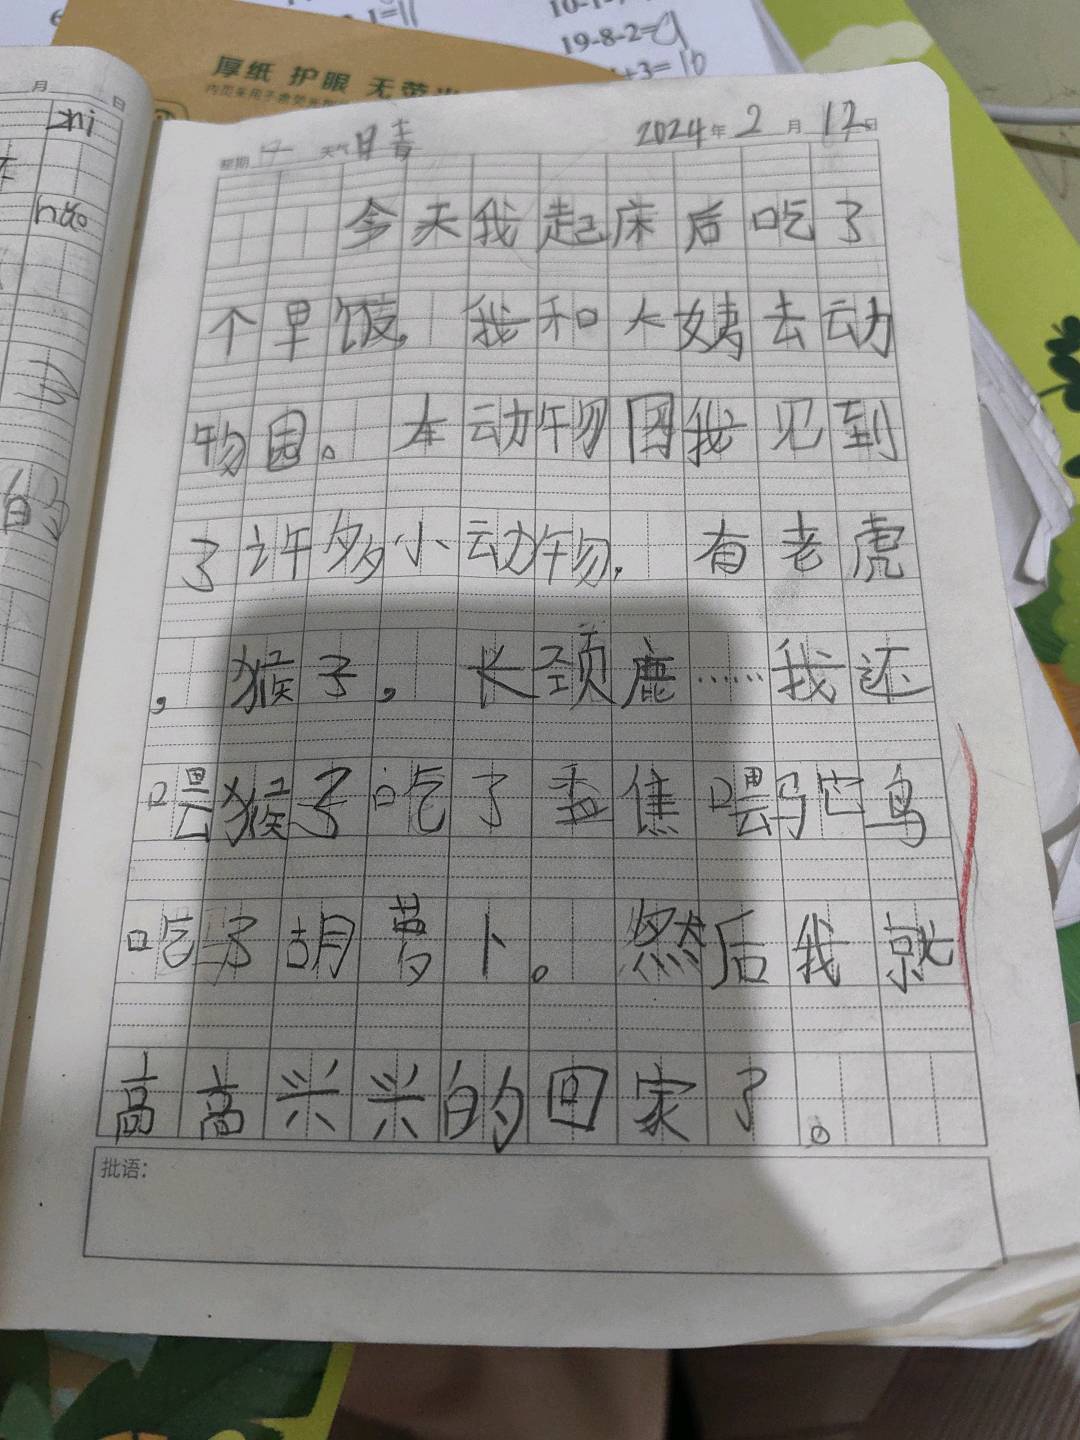 1=11
10-1-
19-8-2=9
+3=10
厚纸 护眼 无荧光
月 日
zhi
hao
白
星期 天气 晴 2024年2月12日
今天我起床后吃了
个早饭，我和大姨去动
物园。本动物园我见到
了许多小动物，有老虎
，猴子，长颈鹿……我还
喂猴子吃了香焦喂驼鸟
吃了胡萝卜。然后我就
高高兴兴的回家了。
批语：